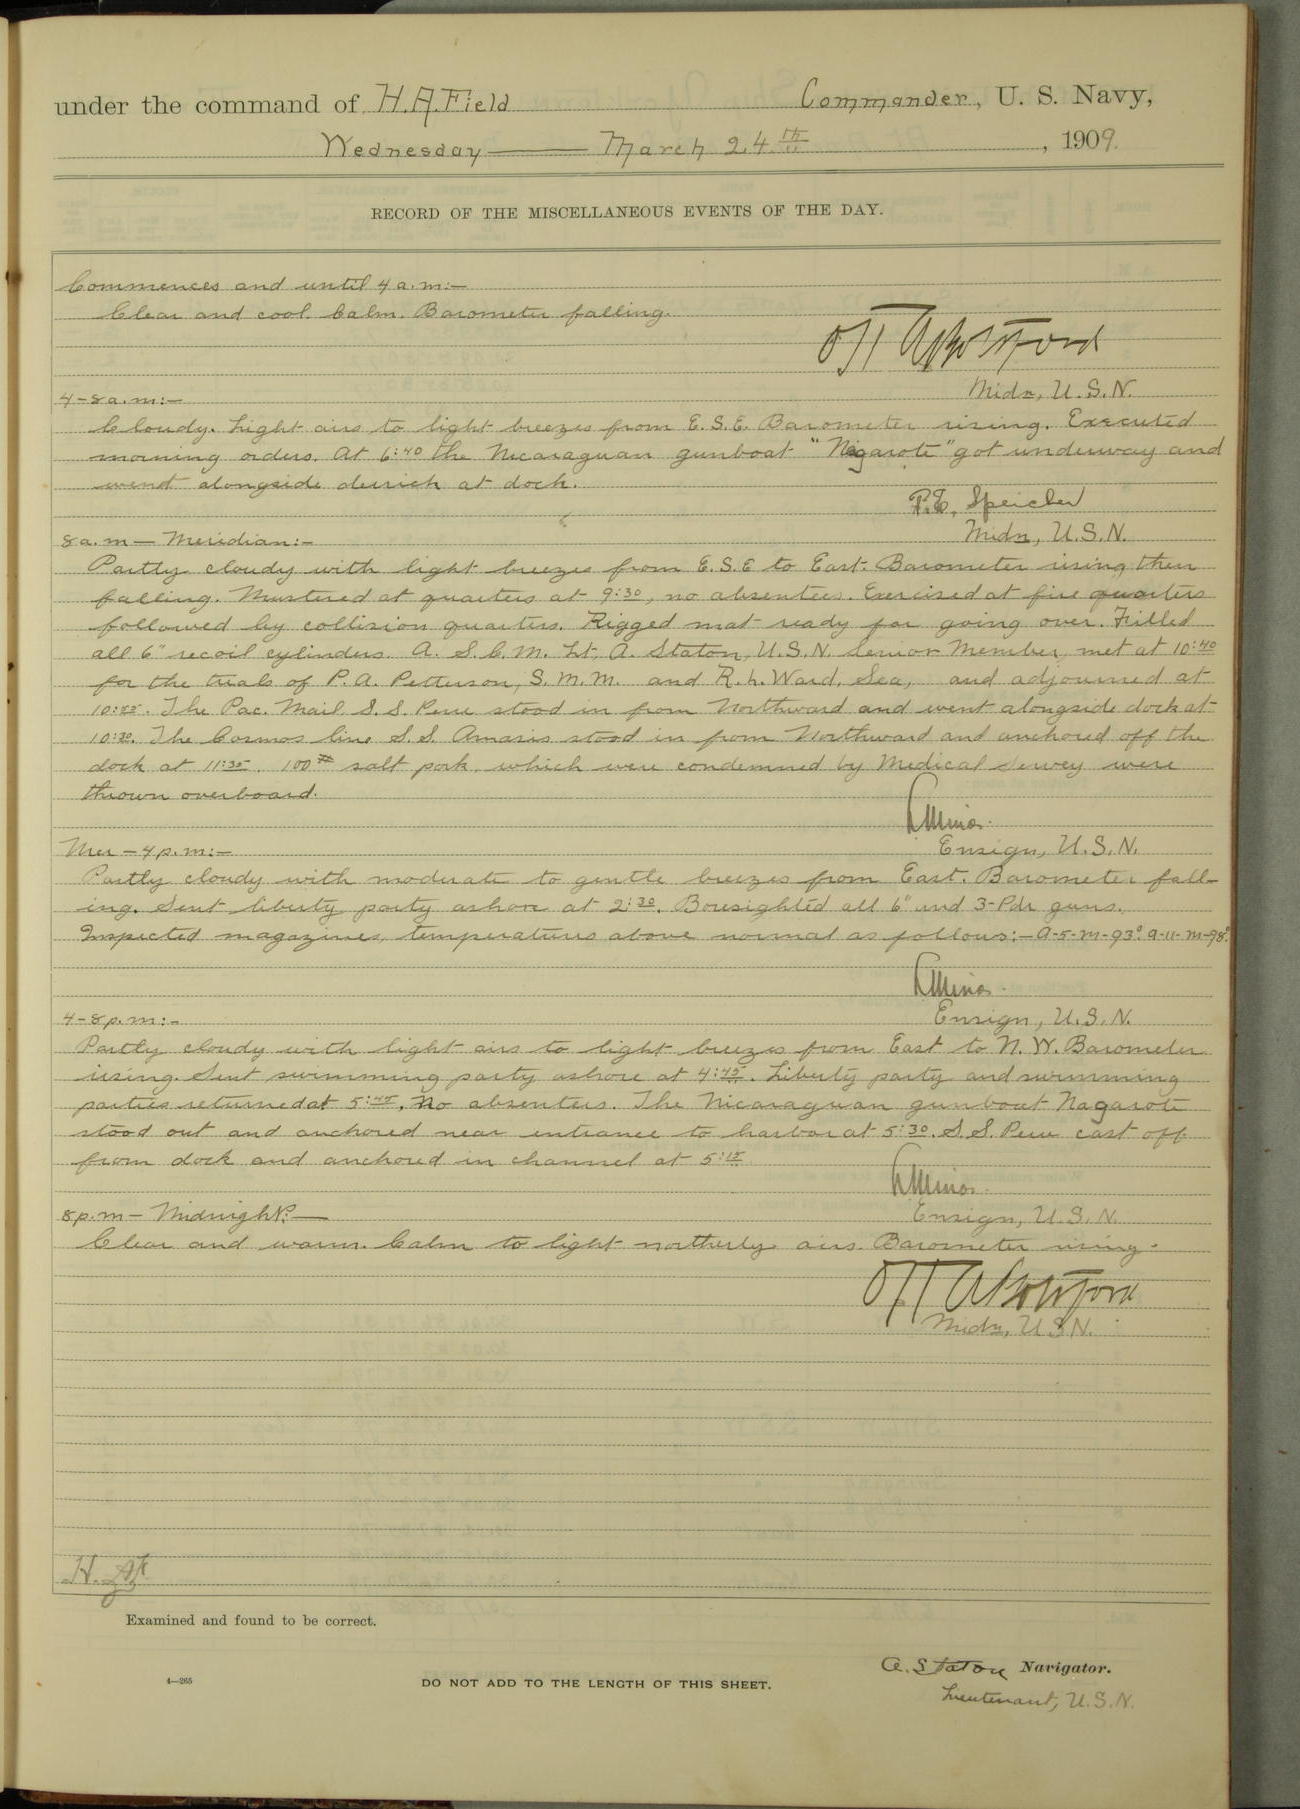 under the command of H.A.Field Commander, U. S. Navy,
Wednesday — March 24th, 1909.
RECORD OF THE MISCELLANEOUS EVENTS OF THE DAY.
Commences and until 4 a.m:—
Clear and cool. Calm. Barometer falling.
Midn, U.S.N.
4-8 a.m:—
Cloudy. Light airs to light breezes from E.S.E. Barometer rising. Executed
morning orders. At 6:40 the Nicaraguan gunboat "Nagarote" got underway and
went alongside derrick at dock.
P.E. Speicher
Midn, U.S.N.
8 a.m — Meridian:—
Partly cloudy with light breezes from E.S.E to East. Barometer rising then
falling. Mustered at quarters at 9:30, no absentees. Exercised at fire quarters
followed by collision quarters. Rigged mat ready for going over. Filled
all 6" recoil cylinders. A. S.C.M. Lt. A. Staton, U.S.N. Senior Member, met at 10:40
for the trials of P.A. Petterson, S.M.M. and R.L. Ward, Sea, and adjourned at
The Pac. Mail S.S. Peru stood in from Northward and went alongside dock at
10:30. The Cosmos line S.S. Amasis stood in from Northward and anchored off the
dock at 11:35. 100# salt pork which were condemned by Medical Survey were
thrown overboard.
Ensign, U.S.N.
Mer — 4 p.m:—
Partly cloudy with moderate to gentle breezes from East. Barometer fall-
ing. Sent liberty party ashore at 2:30. Boresighted all 6" and 3-Pdr guns.
Inspected magazines, temperatures above normal as follows:— A-5-M-93°. A-11-M-98°.
Ensign, U.S.N.
4-8 p.m:—
Partly cloudy with light airs to light breezes from East to N.W. Barometer
rising. Sent swimming party ashore at 4:45. Liberty party and swimming
parties returned at 5:45. No absentees. The Nicaraguan gunboat Nagarote
stood out and anchored near entrance to harbor at 5:30. S.S. Peru cast off
from dock and anchored in channel at 5:15
Ensign, U.S.N.
8 p.m — Midnight:—
Clear and warm. Calm to light northerly airs. Barometer rising.
Midn, U.S.N.
Examined and found to be correct.
A. Staton Navigator.
4—265
DO NOT ADD TO THE LENGTH OF THIS SHEET.
Lieutenant, U.S.N.